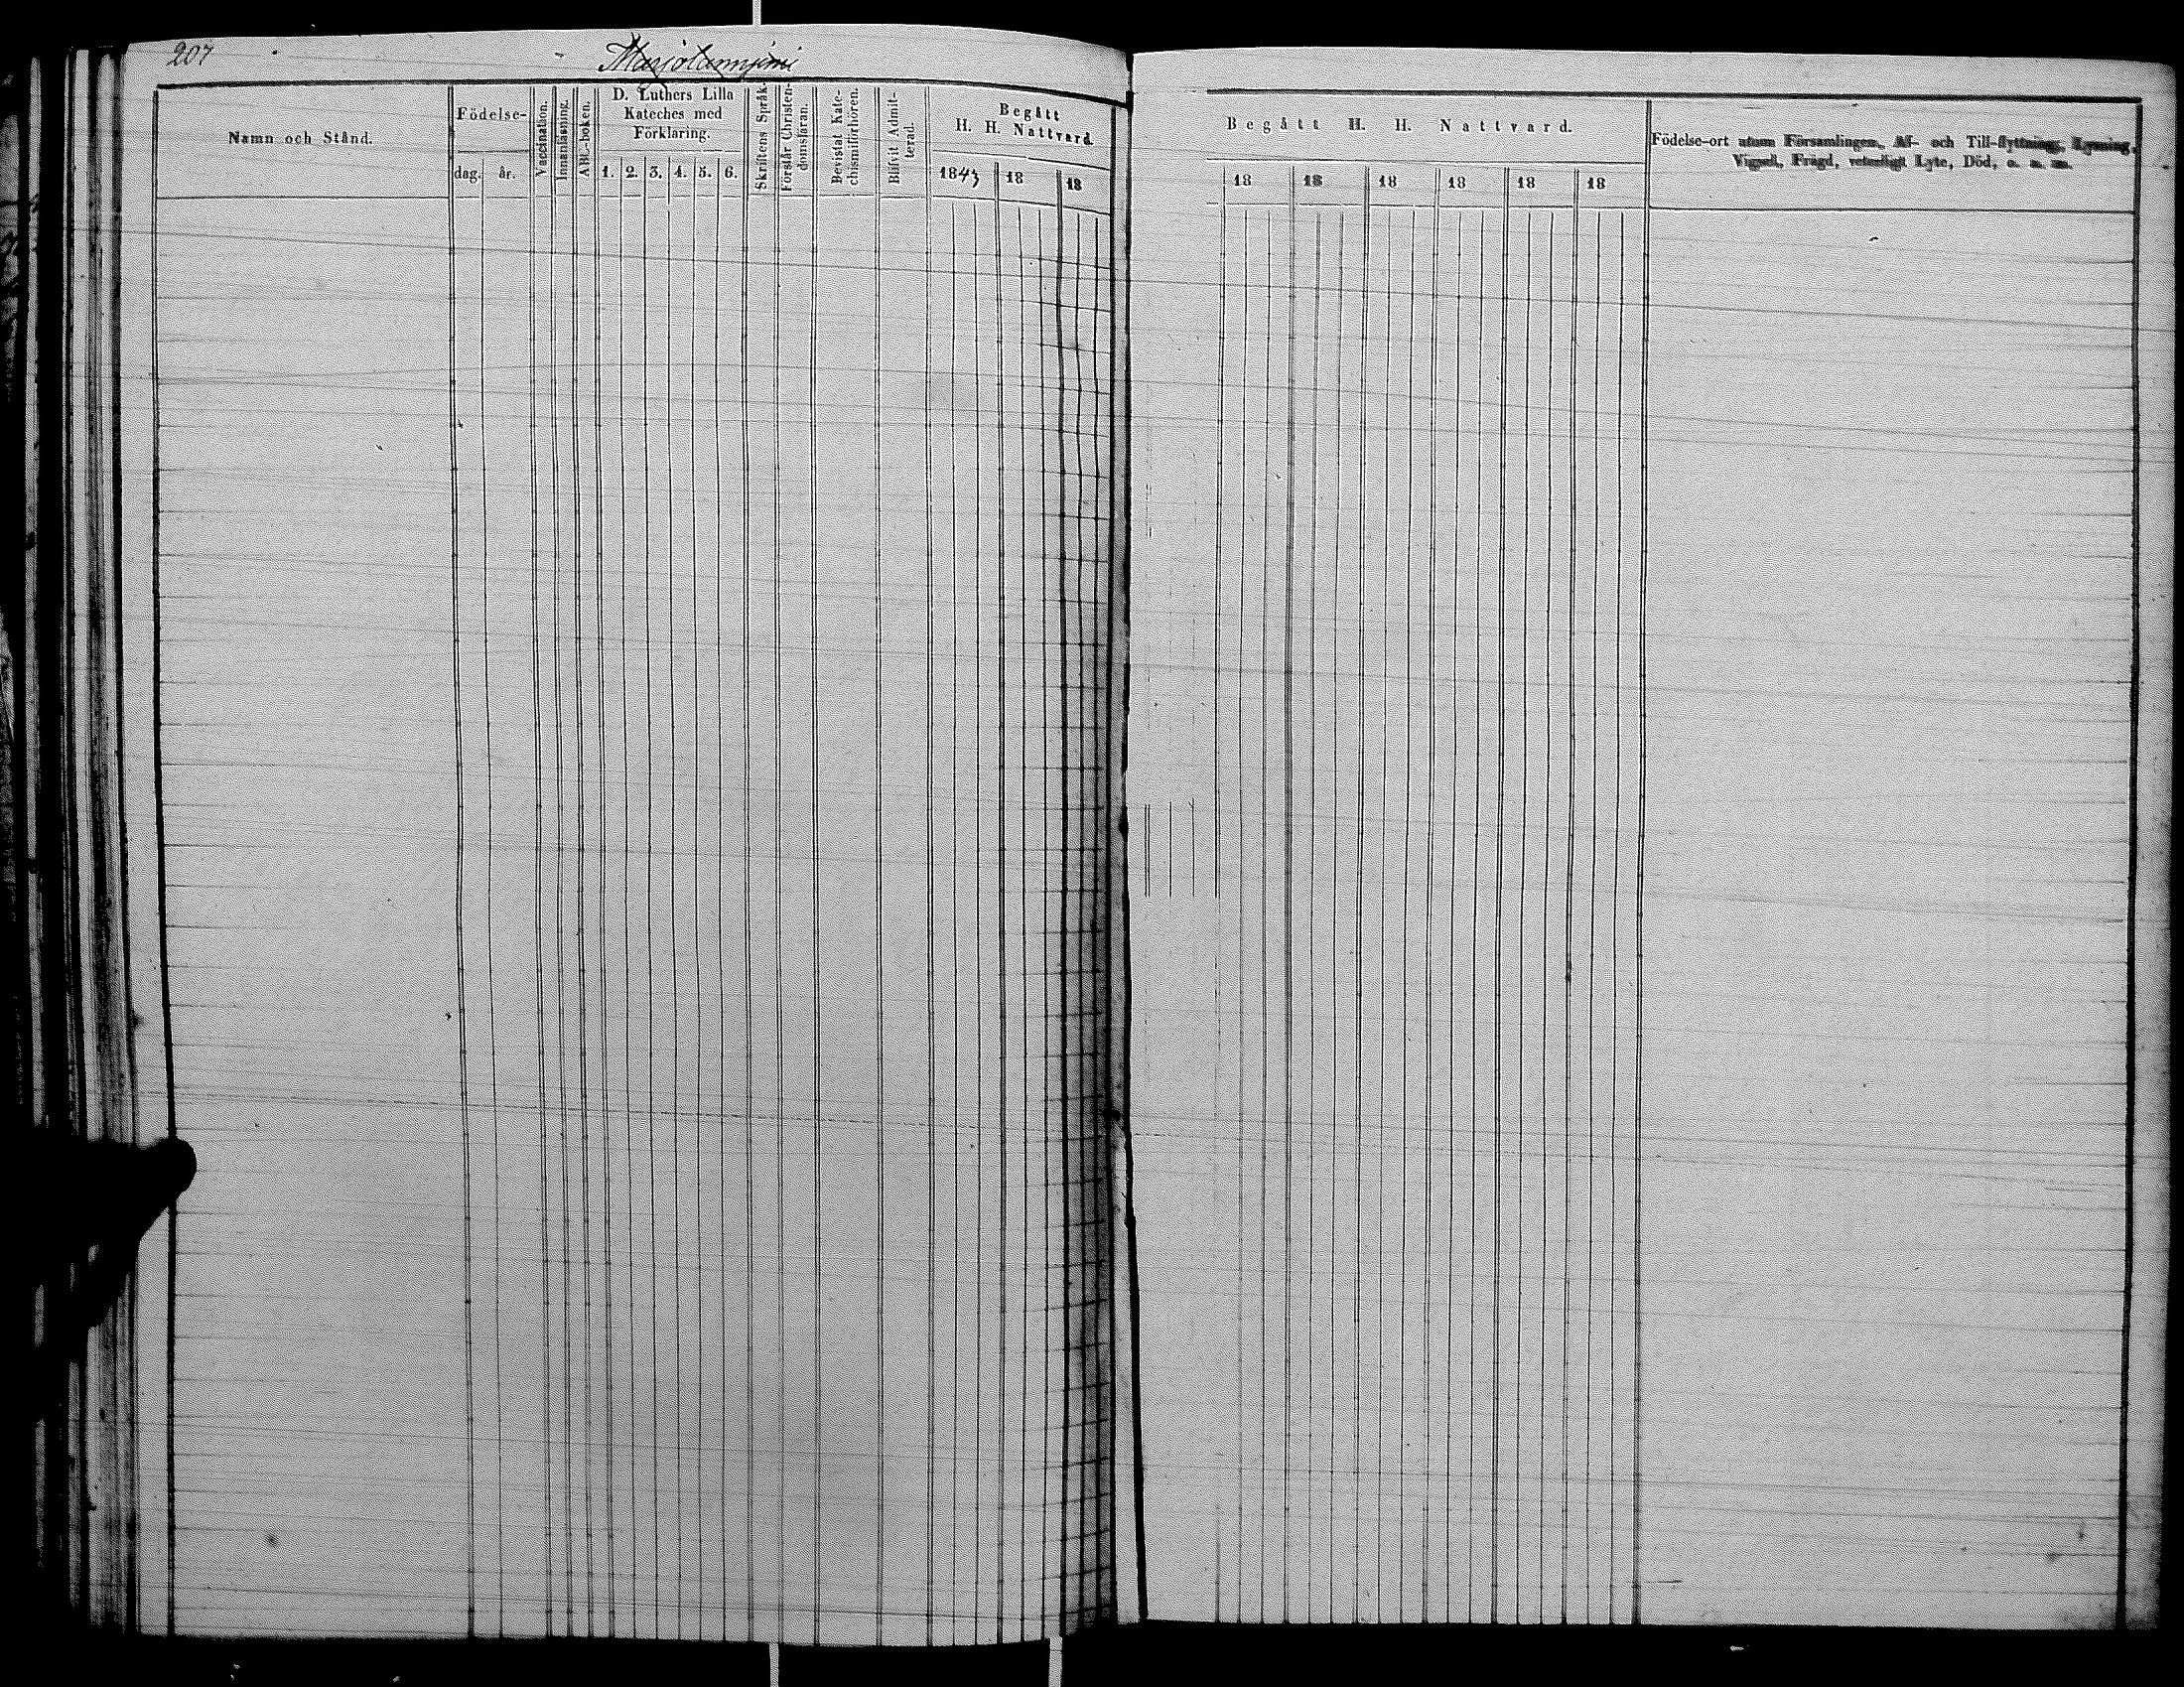 207
Marjolanniemi
Namn och Stånd.
Födelse-
dag. år.
Vaccination.
Innanläsning.
ABC-boken.
D. Luthers Lilla
Kateches med
Förklaring.
1. 2. 3. 4. 5. 6.
Skriftens Språk.
Förstår Christen-
domsläran.
Bevistat Kate-
chismiförhören.
Blifvit Admit-
terad.
Begått
H. H. Nattvard.
1843 18 18
Begått H. H. Nattvard.
18 18 18 18 18 18
Födelse-ort utom Församlingen, Af- och Till-flyttning, Lysning,
Vigsel, Frägd, veterligt Lyte, Död, o. s. m.